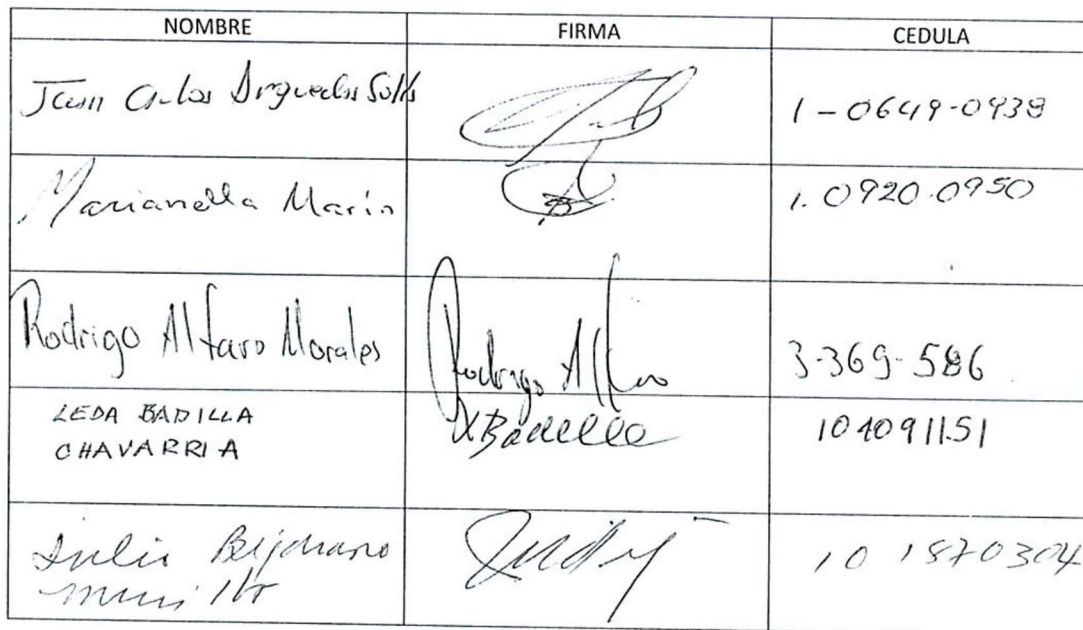 NOMBRE FIRMA CEDULA
Juan Carlos Arguedas Solís 1-0649-0938
Marianella Marín 1.0920.0950
Rodrigo Alfaro Morales Rodrigo Alfaro 3-369-586
LEDA BADILLA LBadilla 104091151
CHAVARRIA
Julio Bejarano 10 1870304
Murillo